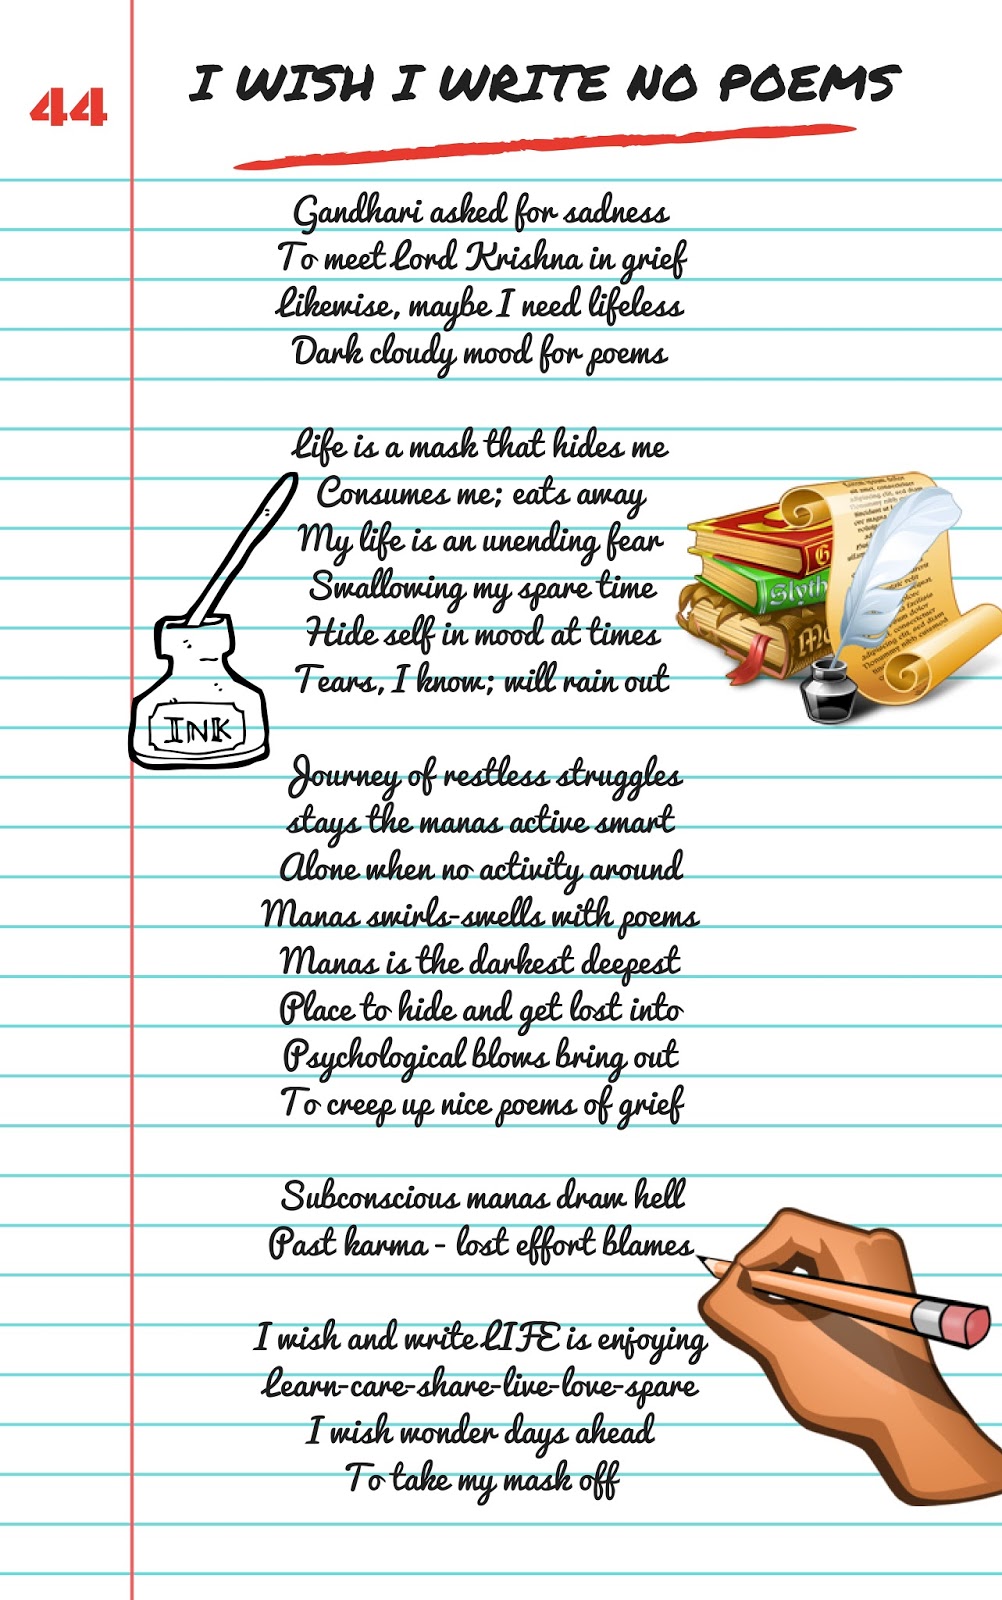 44
I WISH I WRITE NO POEMS
Gandhari asked for sadness
To meet Lord Krishna in grief
Likewise, maybe I need lifeless
Dark cloudy mood for poems
Life is a mask that hides me
Consumes me; eats away
My life is an unending fear
Swallowing my spare time
Hide self in mood at times
Tears, I know; will rain out
INK
Journey of restless struggles
stays the manas active smart
Alone when no activity around
Manas swirls-swells with poems
Manas is the darkest deepest
Place to hide and get lost into
Psychological blows bring out
To creep up nice poems of grief
Subconscious manas draw hell
Past karma - lost effort blames
I wish and write LIFE is enjoying
Learn-care-share-live-love-spare
I wish wonder days ahead
To take my mask off